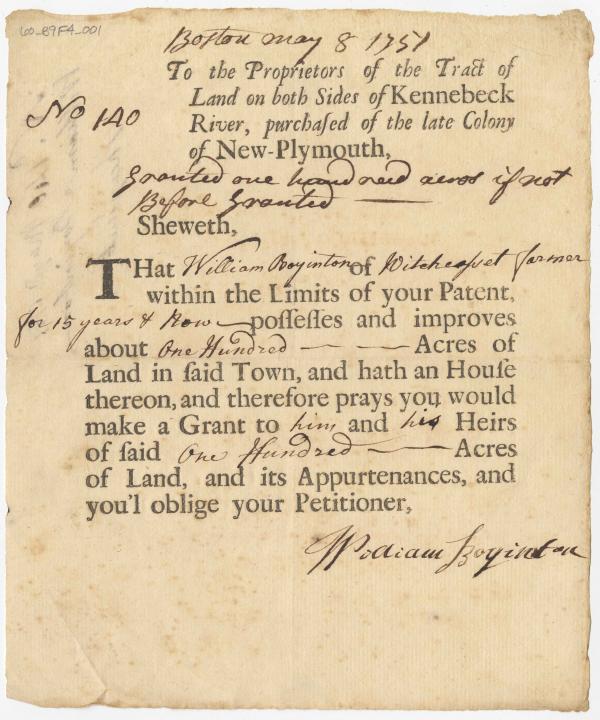 60_89F4_001
Boston may 8 1751
To the Proprietors of the Tract of
Land on both Sides of Kennebeck
No 140
River, purchaſed of the late Colony
of New-Plymouth,
Granted one hundred acres if not
Before Granted
Sheweth,
THat William Boyinton of Witchcasset farmer
within the Limits of your Patent,
for 15 years & Now poſſeſſes and improves
about One Hundred — — Acres of
Land in ſaid Town, and hath an Houſe
thereon, and therefore prays you would
make a Grant to him and his Heirs
of ſaid One Hundred — Acres
of Land, and its Appurtenances, and
you'l oblige your Petitioner,
William Boyinton